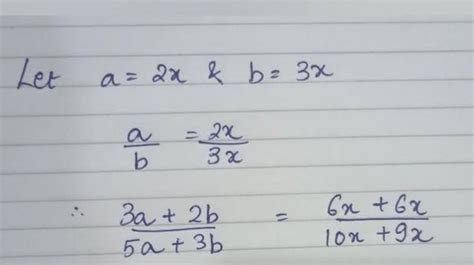 Let a = 2x & b = 3x
a/b = 2x/3x
∴ 3a + 2b / 5a + 3b = 6x + 6x / 10x + 9x